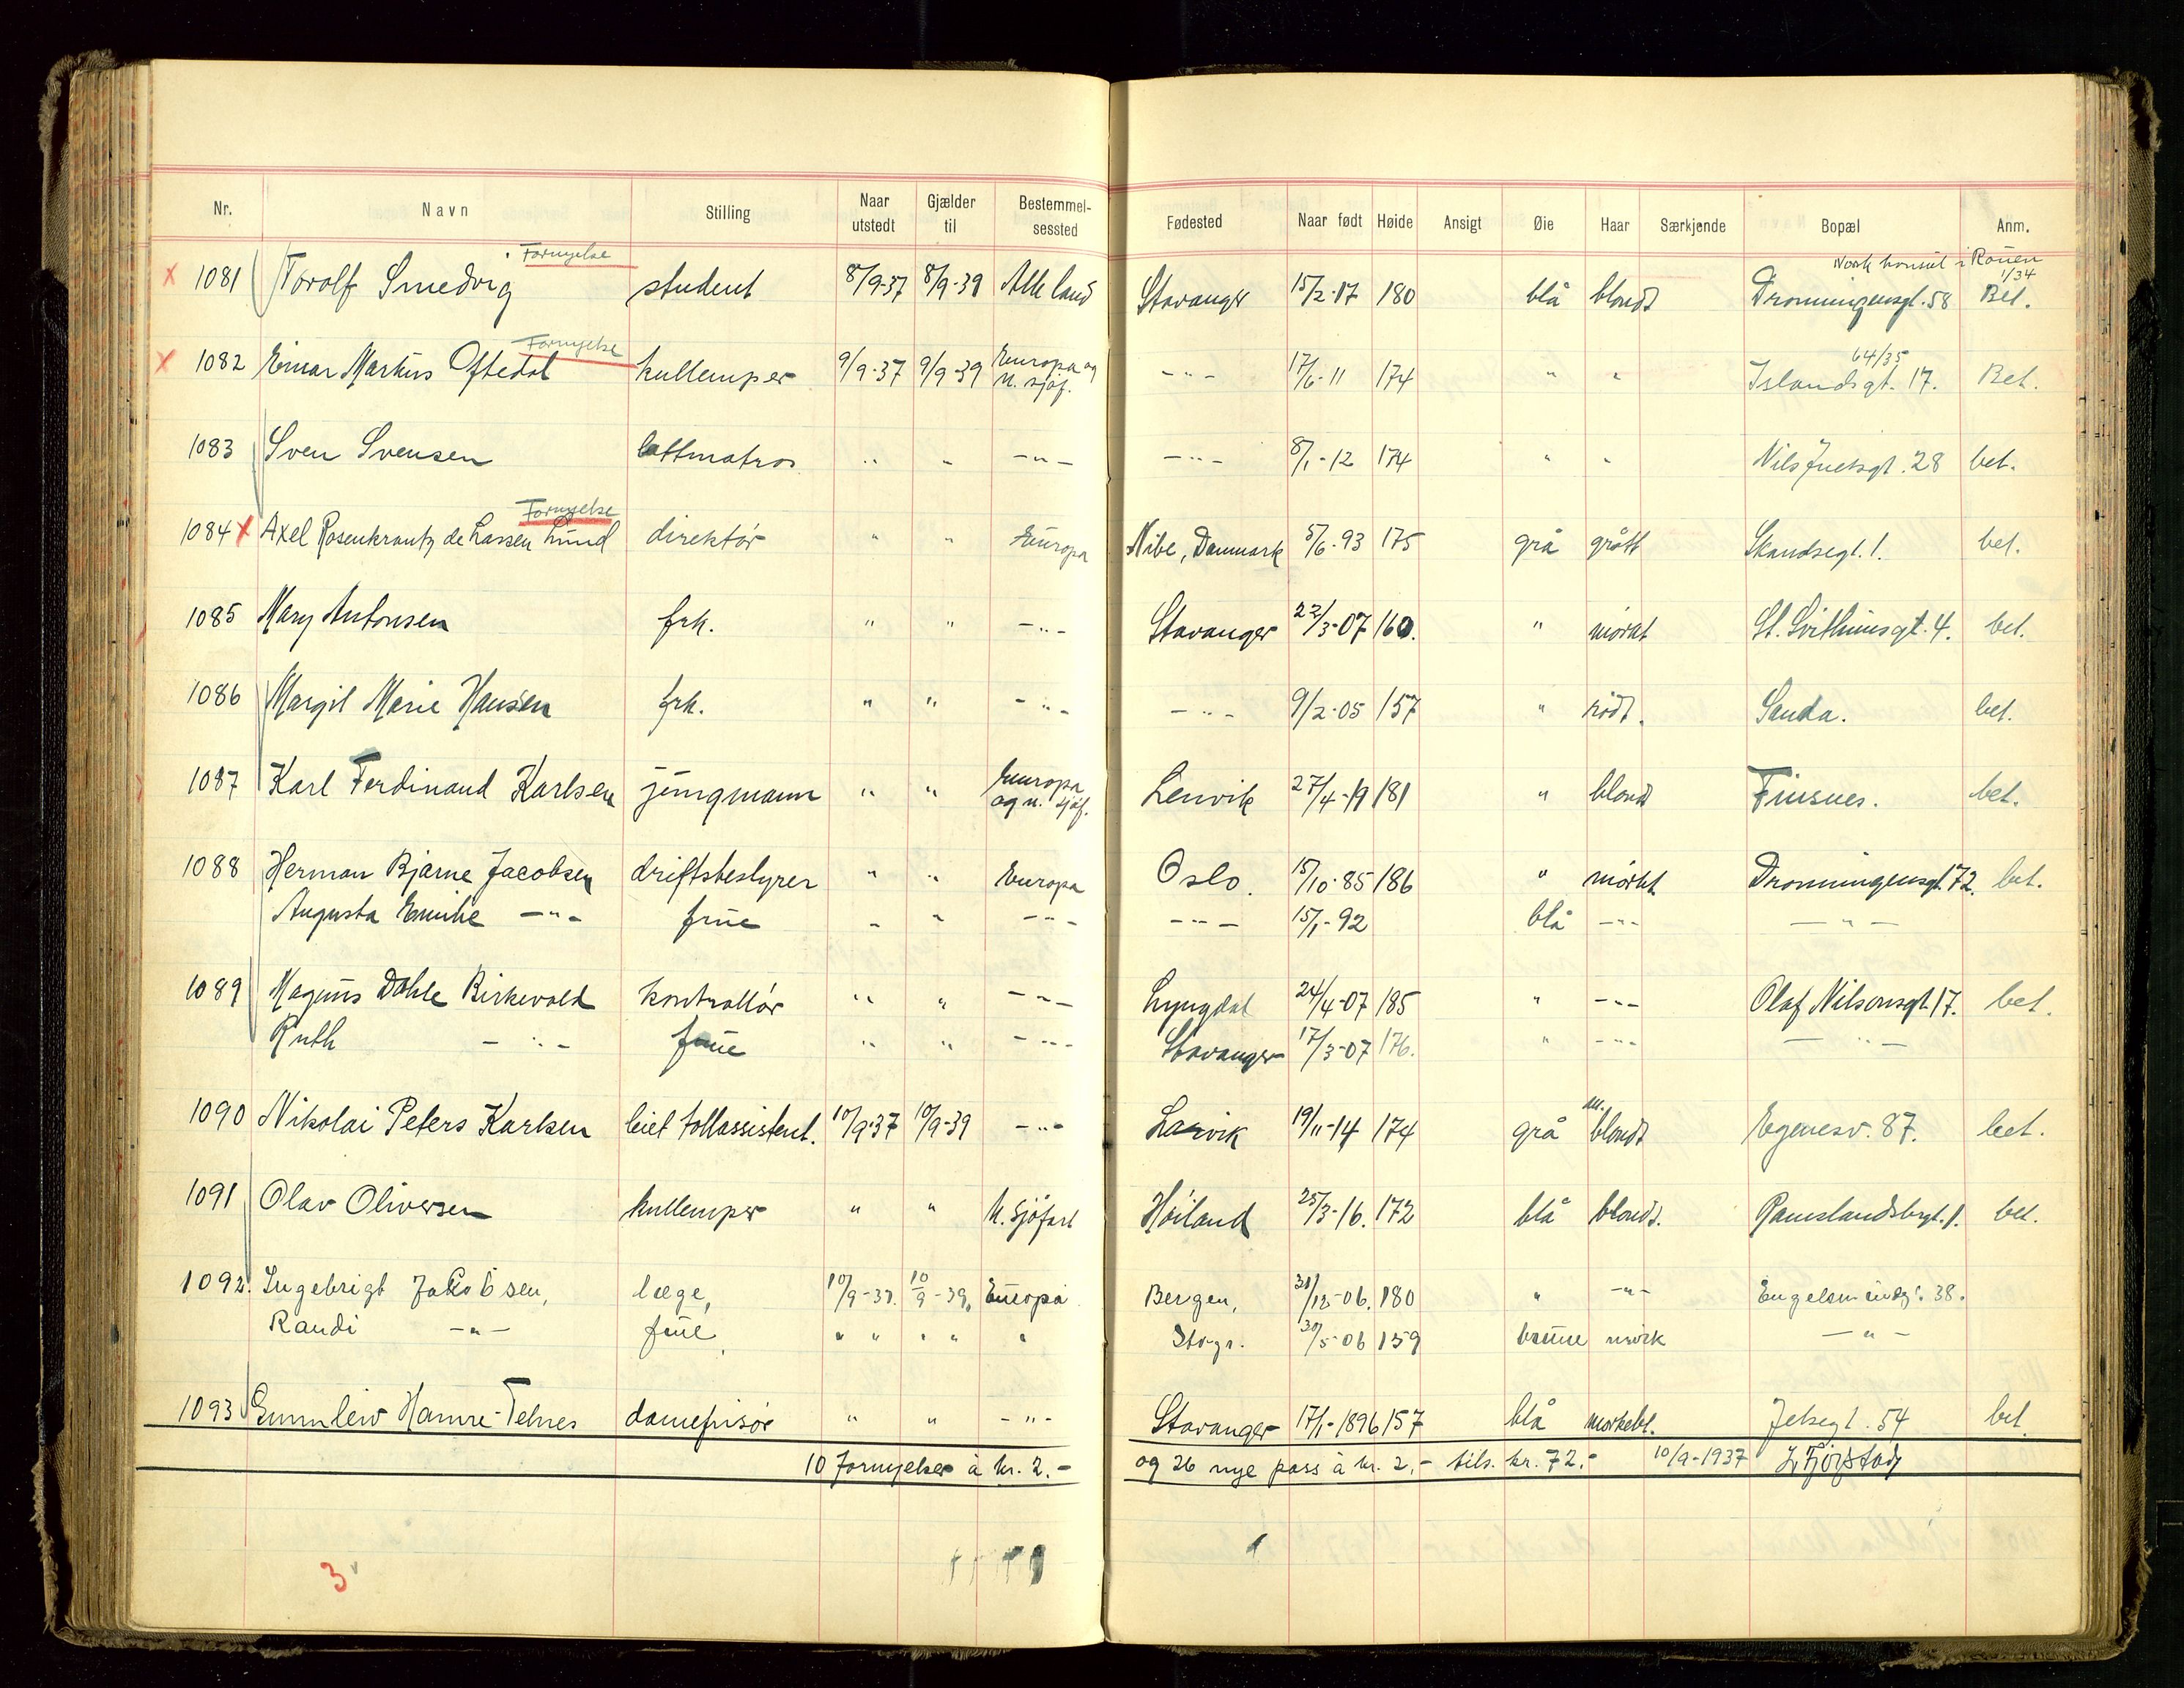 Nr. Navn Stilling Naar utstedt Gjælder til Bestemmelsessted Fødested Naar født Høide Ansigt Øie Haar Særkjende Bopæl Anm.
Fornyelse Norsk konsul i Rouen 1/34
x 1081 Torolf Smedvig student 8/9-37 8/9-39 Alle land Stavanger 15/2-17 180 blå blondt Dronningensgt. 58 Bet.
Fornyelse 64/35
x 1082 Einar Martius Oftedal kullemper 9/9-37 9/9-39 Europa og u. sjøf. -"- 17/6-11 174 " " Islandsgt. 17. Bet.
1083 Sven Svensen lettmatros " " -"- -"- 8/1-12 174 " " Nils Juelsgt. 28 bet.
Fornyelse
1084 x Axel Rosenkrantz de Lassen Lund direktør " " Europa Nibe, Danmark 5/6-93 175 grå grått Skandsegt. 1. bet.
1085 Mary Antonsen frk. " " -"- Stavanger 22/3-07 160. " mørkt St. Svithunsgt. 4. bet.
1086 Margit Marie Hansen frk. " " -"- -"- 9/2-05 157 " rødt. Sauda. bet.
1087 Karl Ferdinand Karlsen jungmann " " Europa og u. sjøf. Lenvik 27/4-19 181 " blond Finsnes. bet.
1088 Herman Bjarne Jacobsen driftsbestyrer " " Europa Oslo. 15/10-85 186 " mørkt Dronningensgt. 72. bet.
Augusta Emilie -"- frue " " -"- -"- 15/1-92 blå -"- -"-
1089 Magnus Dahle Birkevold kontrollør " " -"- Lyngdal 24/4-07 185 " -"- Olaf Nilsonsgt. 17. bet.
Ruth -"- frue " " -"- Stavanger 17/3-07 176. " -"- -"-
1090 Nikolai Peters Karlsen leiet tollassistent. 10/9-37 10/9-39 -"- Larvik 19/11-14 174 grå m. blondt Egenesv. 87. bet.
1091 Olav Oliversen kullemper " " U. sjøfart Høiland 25/3-16. 172 blå blondt. Ramslandsbrgt. 1. bet.
1092. Ingebrigt Jakobsen, læge, 10/9-37. 10/9-39, Europa Bergen, 31/12-06. 180 " -"- 38.
Randi -"- frue, " " " " " Stvgr. 30/5-06 159 brune mørk -"-
1093 Gunnleiv Hamre-Telnes damefrisør " " -"- Stavanger 17/1-1896 157 blå mørkebl. Jelsegt. 54 bet.
10 Fornyelser à kr. 2.- og 26 nye pass à kr. 2,- tils. kr. 72.- 10/9-1937
3